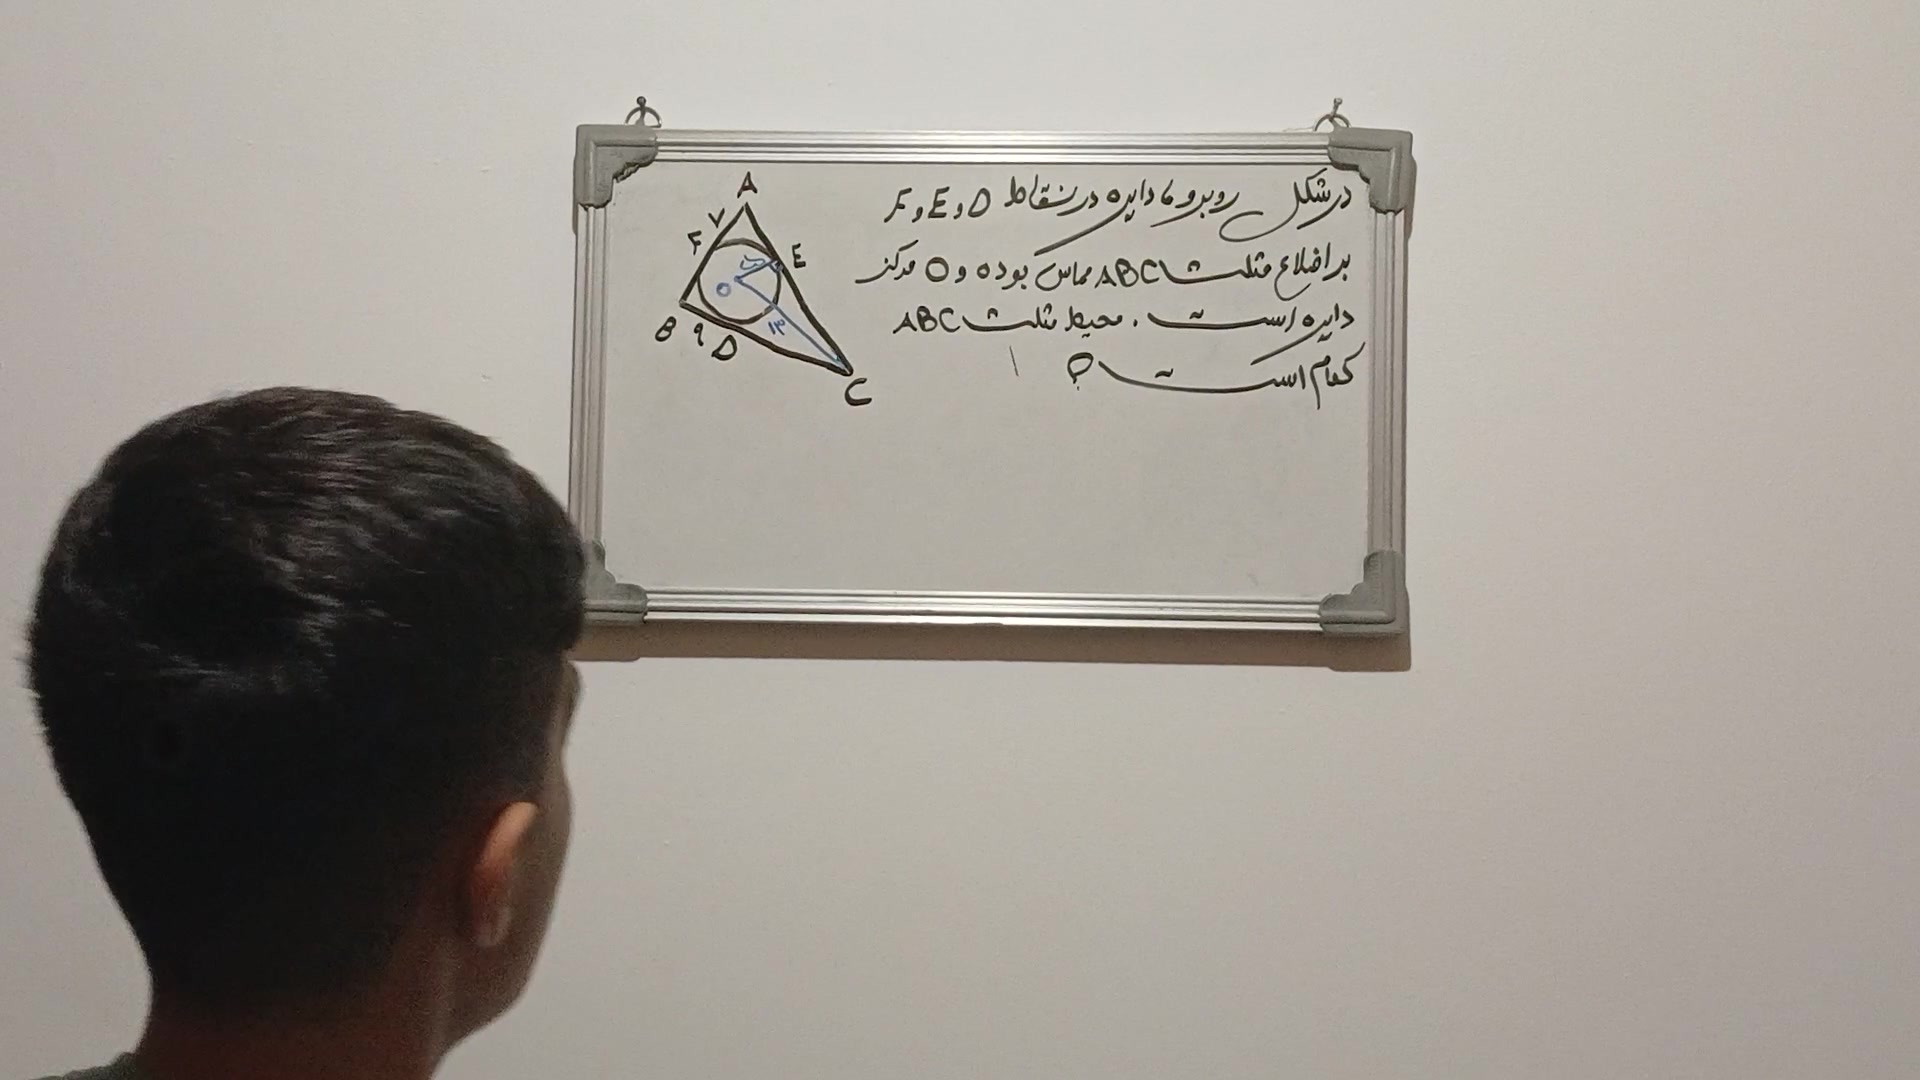 در شکل روبرو، دایره در نقاط D و E و F
بر اضلاع مثلث ABC مماس بوده و O مرکز
دایره است. محیط مثلث ABC
کدام است؟
A
۷
F
E
۵
O
۱۳
B
۹
D
C